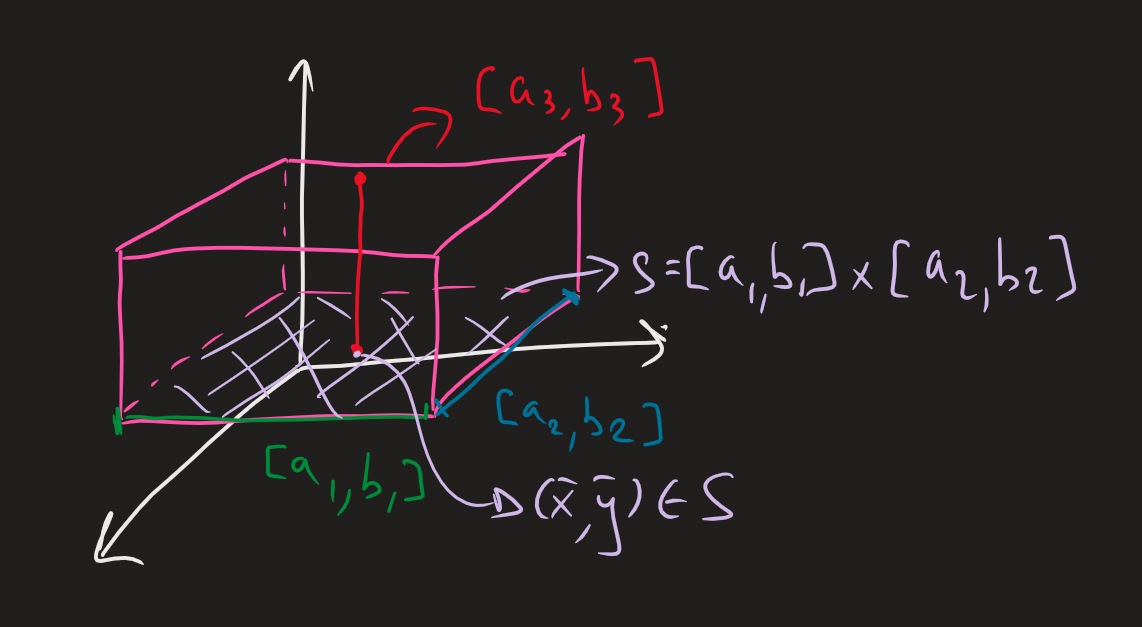 [a₃, b₃]
S = [a₁, b₁] × [a₂, b₂]
[a₂, b₂]
[a₁, b₁]
(x̄, ȳ) ∈ S